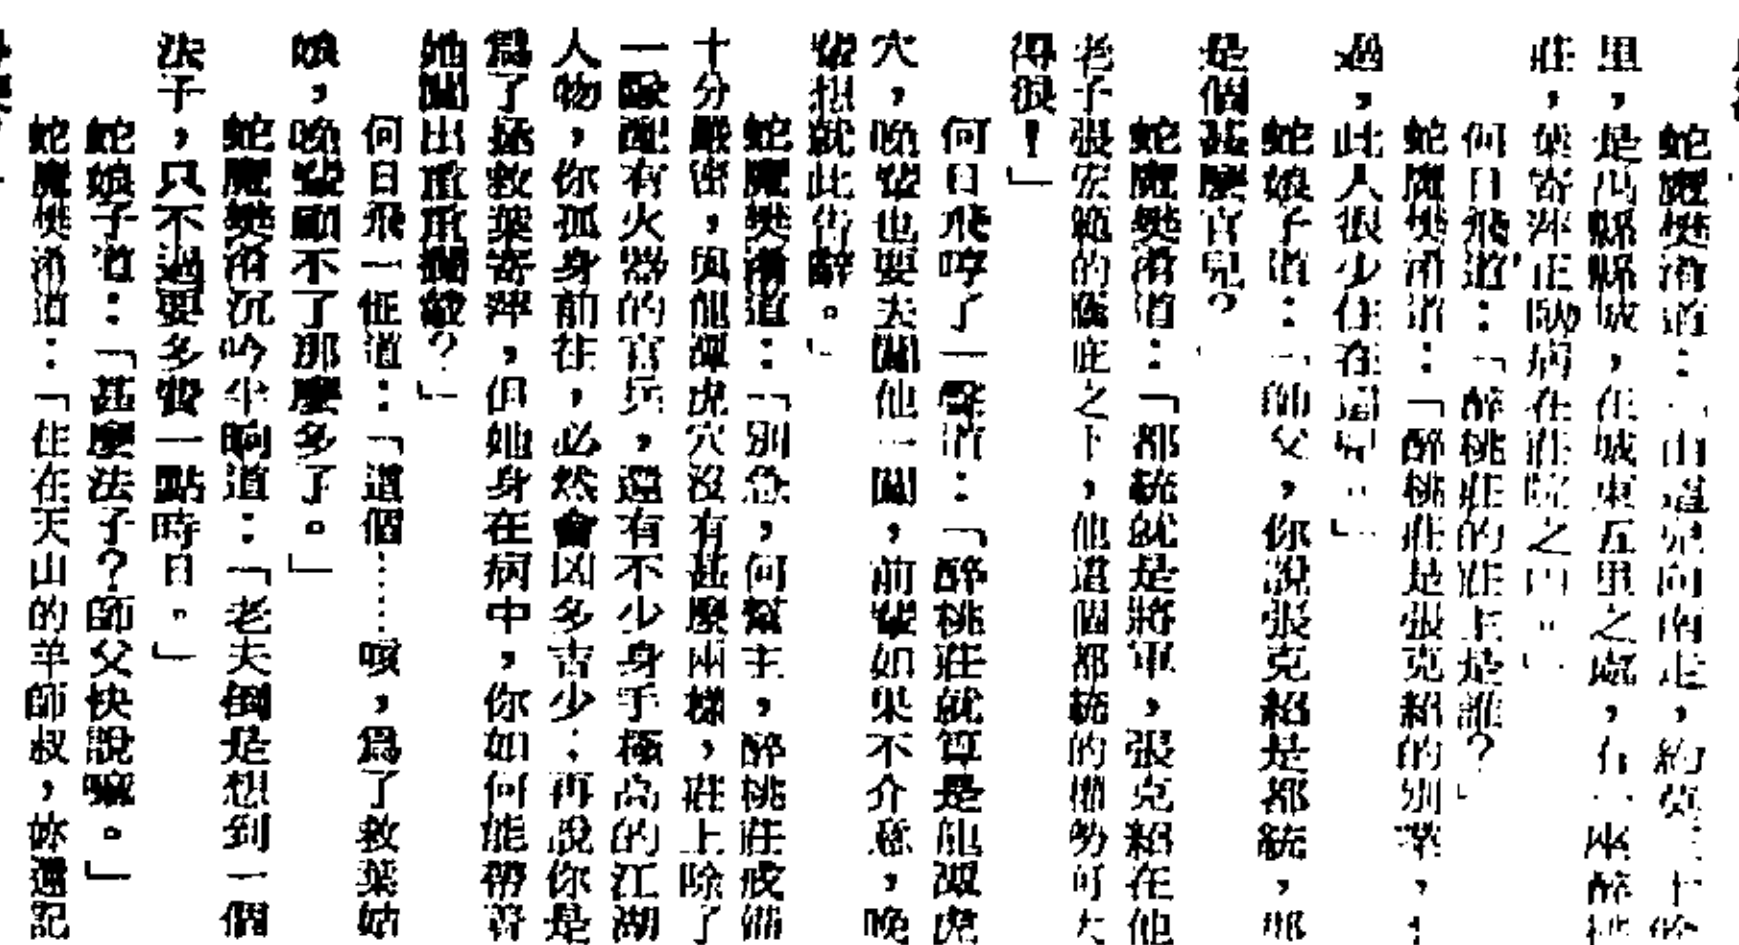 蛇魔樊淯道：「由這兒向南走，約莫三十餘
里，是禹縣縣城，在城東五里之處，有一座醉桃
莊，葉寄萍正臥病在莊院之內。」
何日飛道：「醉桃莊的莊主是誰？」
蛇魔樊淯道：「醉桃莊是張克紹的別業，不
過，此人很少住在這兒。」
蛇娘子道：「師父，你說張克紹是都統，那
是個甚麼官兒？
蛇魔樊淯道：「都統就是將軍，張克紹在他
老子張宏範的蔭庇之下，他這個都統的權勢可大
得很！」
何日飛哼了一聲道：「醉桃莊就算是龍潭虎
穴，晚輩也要去闖他一闖，前輩如果不介意，晚
輩想就此告辭。」
蛇魔樊淯道：「別急，何幫主，醉桃莊戒備
十分嚴密，與龍潭虎穴沒有甚麼兩樣，莊上除了
一隊配有火器的官兵，還有不少身手極高的江湖
人物，你孤身前往，必然會凶多吉少；再說你是
為了拯救葉寄萍，但她身在病中，你如何能帶着
她闖出重重攔截？」
何日飛一怔道：「這個……唉，為了救葉姑
娘，晚輩顧不了那麼多了。」
蛇魔樊淯沉吟半晌道：「老夫倒是想到一個
法子，只不過要多費一點時日。」
蛇娘子道：「甚麼法子？師父快說嘛。」
蛇魔樊淯道：「住在天山的羊師叔，妳還記